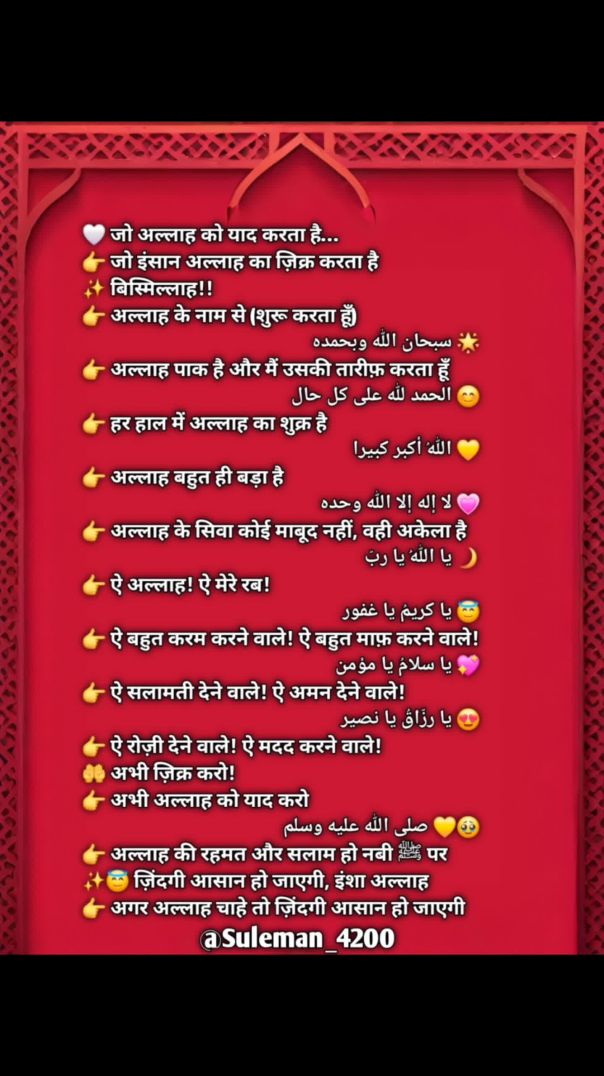 🤍 जो अल्लाह को याद करता है...
👉 जो इंसान अल्लाह का ज़िक्र करता है
✨ बिस्मिल्लाह!!
👉 अल्लाह के नाम से (शुरू करता हूँ)
🌟 سبحان الله وبحمده
👉 अल्लाह पाक है और मैं उसकी तारीफ़ करता हूँ
😊 الحمد لله على كل حال
👉 हर हाल में अल्लाह का शुक्र है
💛 اللهُ أكبر كبيرا
👉 अल्लाह बहुत ही बड़ा है
💗 لا إله إلا الله وحده
👉 अल्लाह के सिवा कोई माबूद नहीं, वही अकेला है
🌙 يا اللهُ يا ربّ
👉 ऐ अल्लाह! ऐ मेरे रब!
😇 يا كريمُ يا غفور
👉 ऐ बहुत करम करने वाले! ऐ बहुत माफ़ करने वाले!
💖 يا سلامُ يا مؤمن
👉 ऐ सलामती देने वाले! ऐ अमन देने वाले!
😍 يا رزّاقُ يا نصير
👉 ऐ रोज़ी देने वाले! ऐ मदद करने वाले!
🤲 अभी ज़िक्र करो!
👉 अभी अल्लाह को याद करो
🥹💛 صلى الله عليه وسلم
👉 अल्लाह की रहमत और सलाम हो नबी ﷺ पर
✨😇 ज़िंदगी आसान हो जाएगी, इंशा अल्लाह
👉 अगर अल्लाह चाहे तो ज़िंदगी आसान हो जाएगी
@Suleman_4200